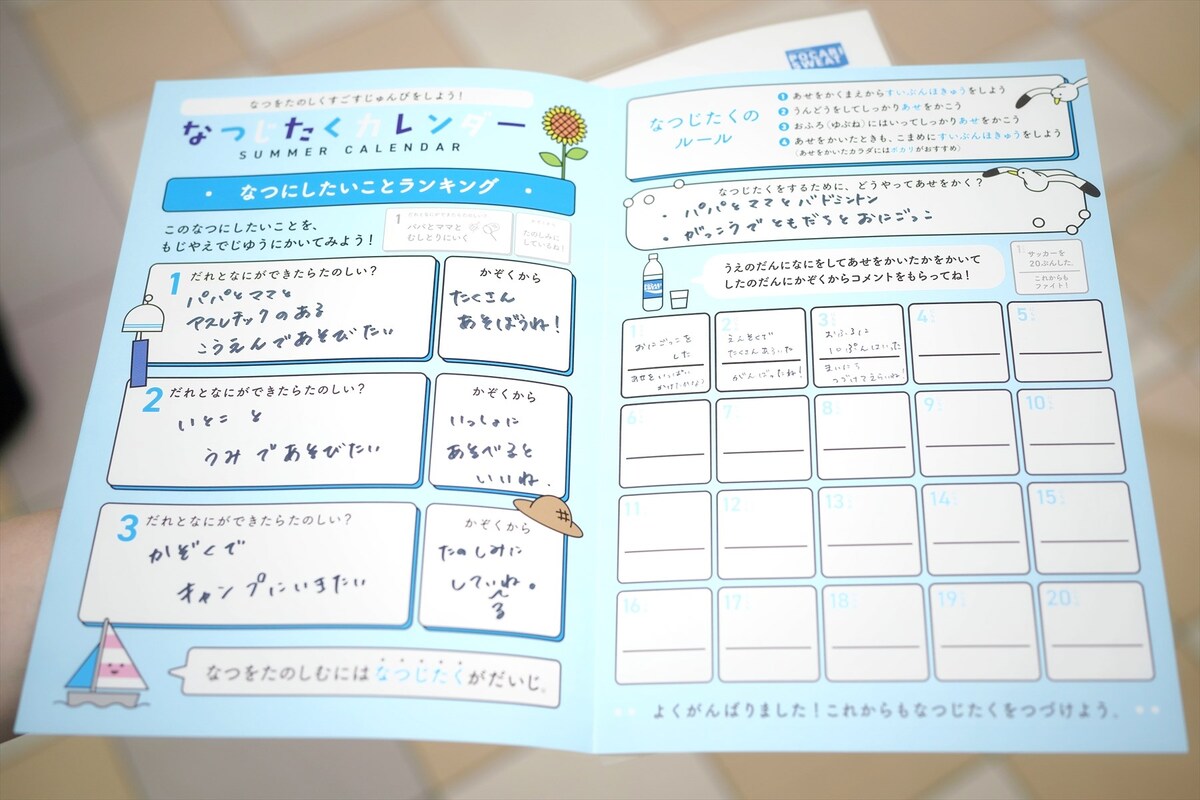 POCARI
SWEAT
なつをたのしくすごすじゅんびをしよう！
なつじたくカレンダー
SUMMER CALENDAR
なつにしたいことランキング
このなつにしたいことを、
もじやえでじゆうにかいてみよう！
1
だれとなにができたらたのしい？
パパとママと
むしとりにいく
たのしみに
しているね！
1
だれとなにができたらたのしい？
パパとママと
アスレチックのある
こうえんであそびたい
かぞくから
たくさん
あそぼうね！
2
だれとなにができたらたのしい？
いとこと
うみであそびたい
かぞくから
いっしょに
あそべると
いいね.
3
だれとなにができたらたのしい？
かぞくで
キャンプにいきたい
かぞくから
たのしみに
しているね。
なつをたのしむにはなつじたくがだいじ。
なつじたくの
ルール
1 あせをかくまえからすいぶんほきゅうをしよう
2 うんどうをしてしっかりあせをかこう
3 おふろ（ゆぶね）にはいってしっかりあせをかこう
4 あせをかいたときも、こまめにすいぶんほきゅうをしよう
（あせをかいたカラダにはポカリがおすすめ）
なつじたくをするために、どうやってあせをかく？
・パパとママとバドミントン
・がっこうでともだちとおにごっこ
うえのだんになにをしてあせをかいたかをかいて
したのだんにかぞくからコメントをもらってね！
サッカーを
20ぷんした。
これからも
ファイト！
1
おにごっこを
した
あせをいっぱい
2
えんそくで
たくさんあるいた
がんばったね！
3
おふろに
10ぷんはいった
まいにち
つづけてえらいね！
4
5
6
7
8
9
10
11
12
13
14
15
16
17
18
19
20
よくがんばりました！これからもなつじたくをつづけよう。